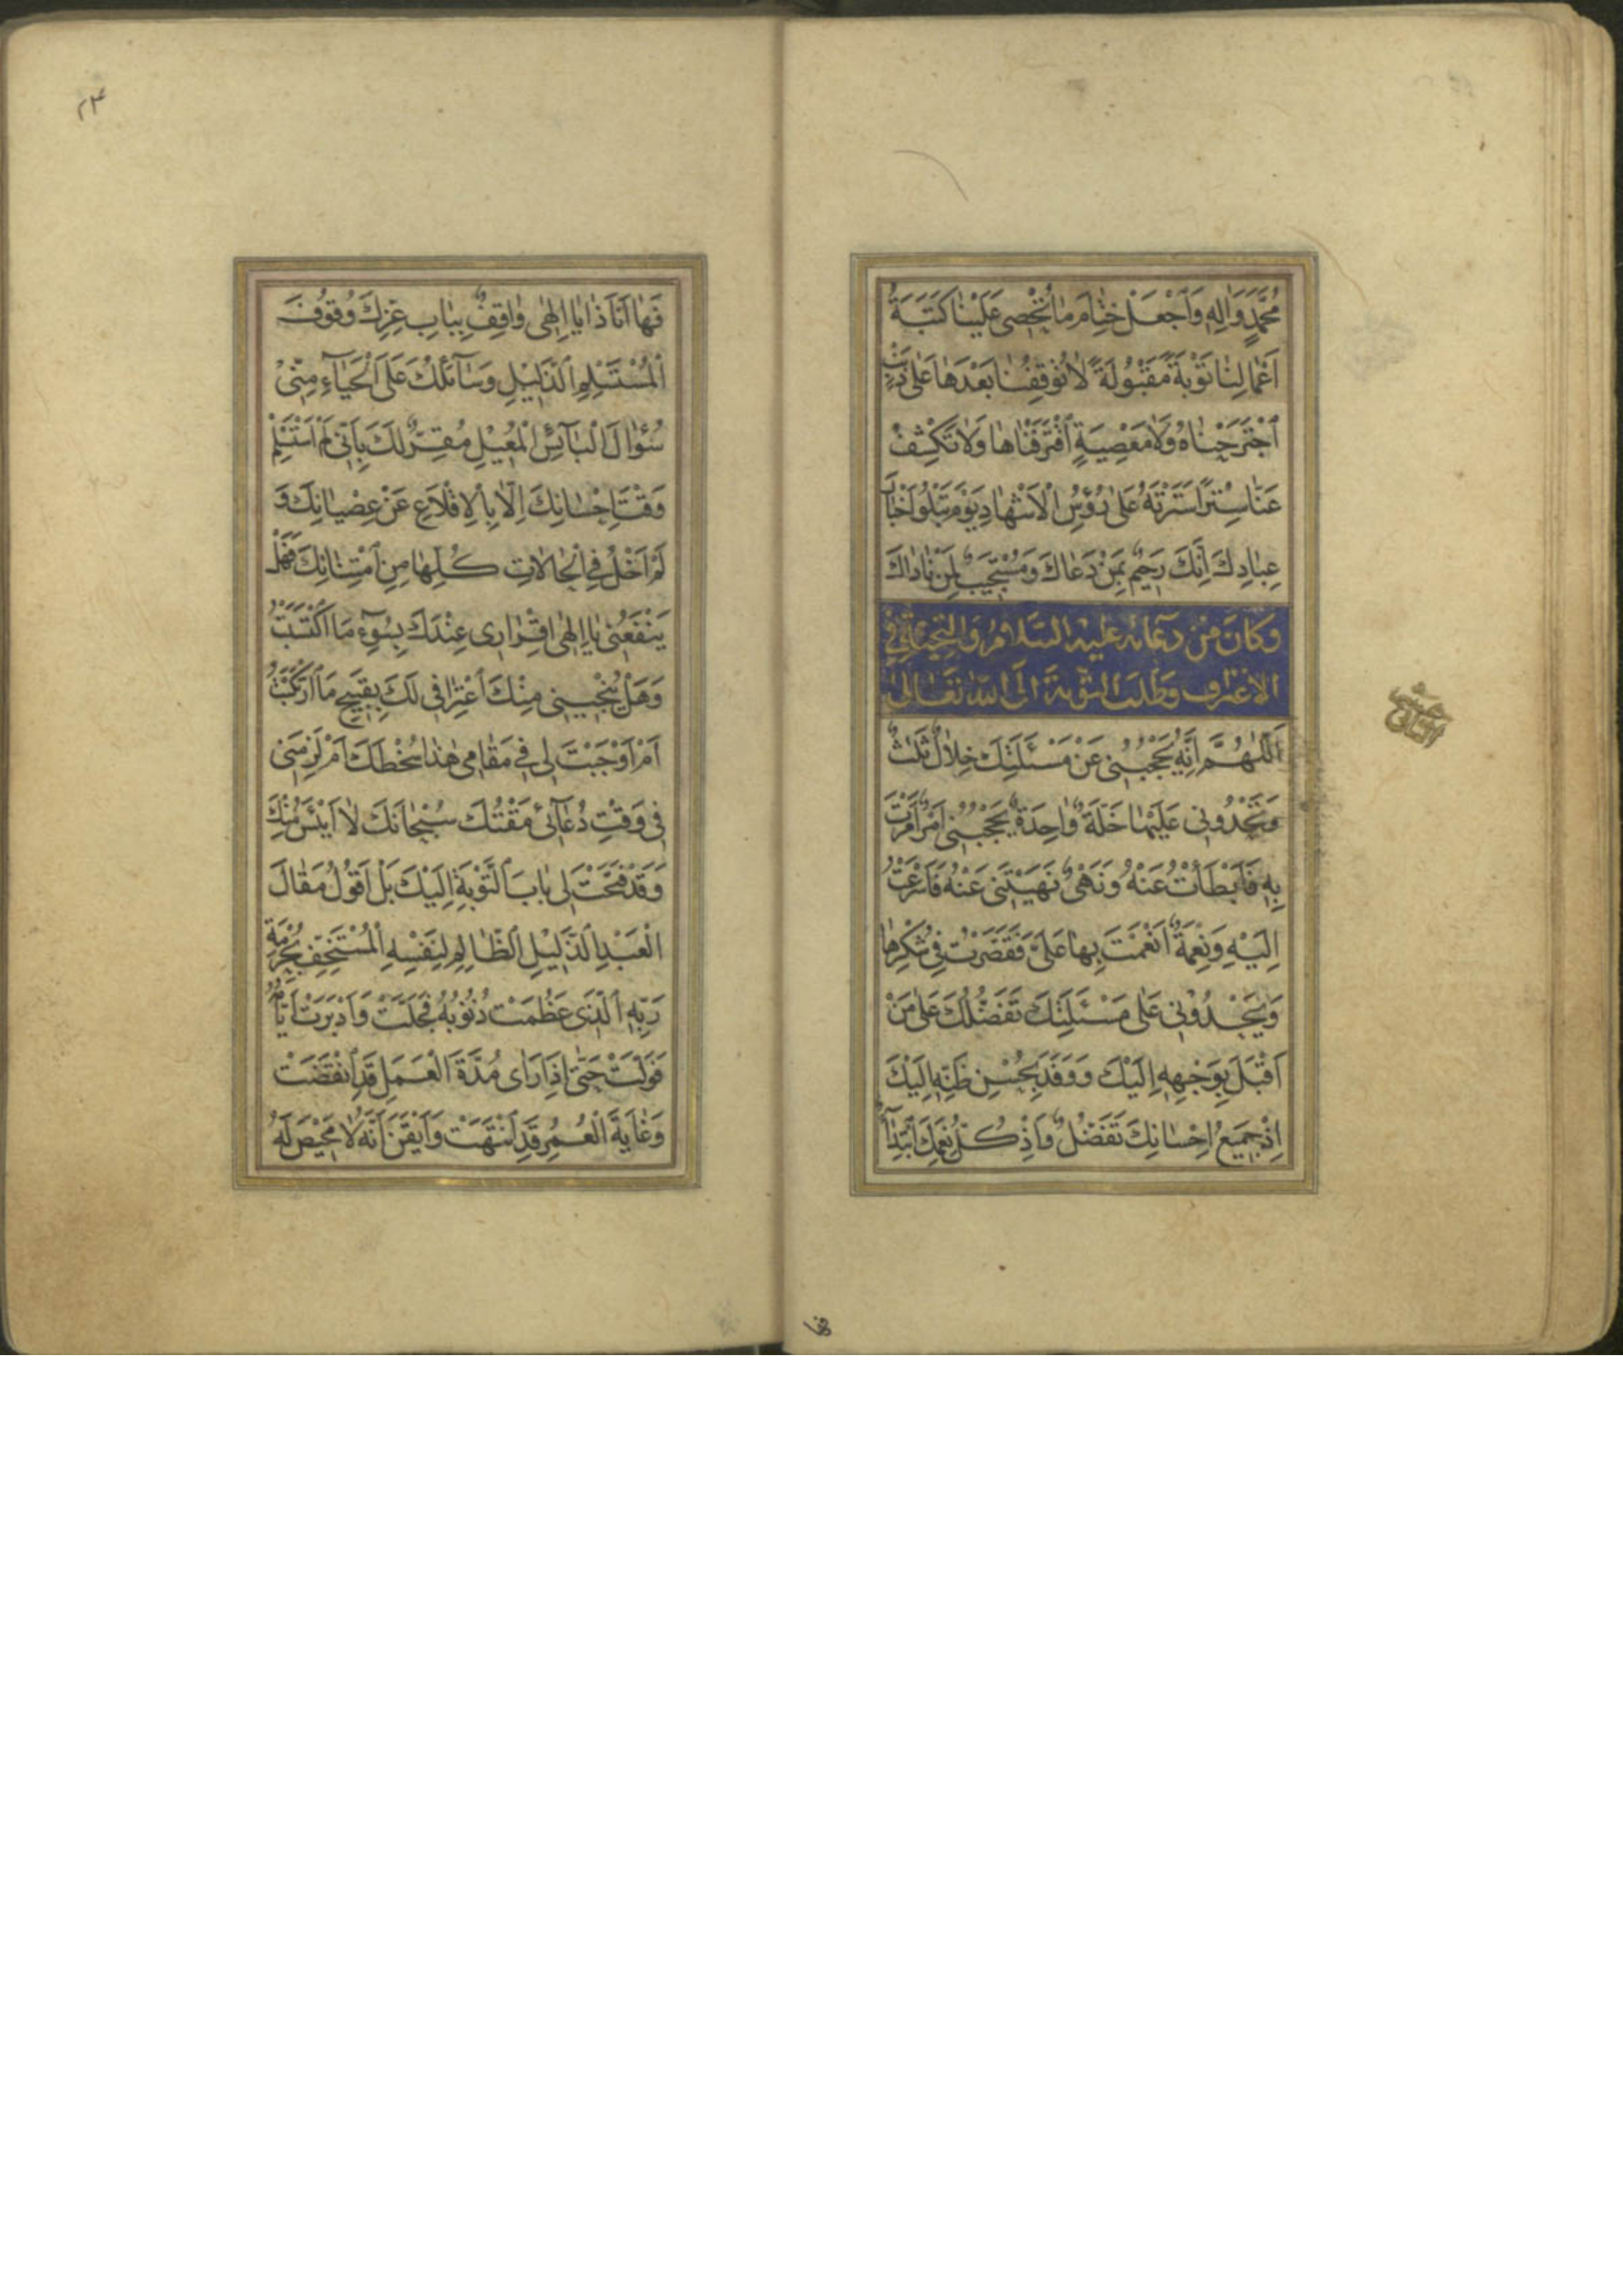 مُحَمَّدٍ وَاٰلِهِ وَاَجْعَلْ خِتٰامَ مٰا تُحْصى عَلَيْنٰا كَتَبَةُ
اَعْمٰالِنٰا تَوْبَةً مَقْبُولَةً لٰا تُوقِفُنٰا بَعْدَهٰا عَلىٰ ذَنْبٍ
اجْتَرَحْنٰاهُ وَلٰا مَعْصِيَةٍ اقْتَرَفْنٰاهٰا وَلٰا تَكْشِفْ
عَنّٰا سِتْراً سَتَرْتَهُ عَلىٰ رُؤُسِ الْاَشْهٰادِ يَوْمَ تَبْلُوا اَخْبٰارَ
عِبٰادِكَ اِنَّكَ رَحيمٌ بِمَنْ دَعٰاكَ وَمُسْتَجيبٌ لِمَنْ نٰادٰاكَ
وَكَانَ مِنْ دعآئه عليه السَّلامُ وَالتحيّة فى
الاعتراف وطلب التّوبة الَى اللّٰه تَعَالىٰ
اَللّٰهُمَّ اِنَّهُ يَحْجُبُنى عَنْ مَسْئَلَتِكَ خِلٰالٌ ثَلٰثٌ
وَتَحْدُونى عَلَيْهٰا خَلَّةٌ وٰاحِدَةٌ يَحْجُبُنى اَمْرٌ اَمَرْتَ
بِهِ فَاَبْطَأْتُ عَنْهُ وَنَهْىٌ نَهَيْتَنى عَنْهُ فَاَسْرَعْتُ
اِلَيْهِ وَنِعْمَةٌ اَنْعَمْتَ بِهٰا عَلَىَّ فَقَصَّرْتُ فى شُكْرِهٰا
وَيَحْدُونى عَلىٰ مَسْئَلَتِكَ تَفَضُّلُكَ عَلىٰ مَنْ
اَقْبَلَ بِوَجْهِهِ اِلَيْكَ وَوَفَدَ بِحُسْنِ ظَنِّهِ اِلَيْكَ
اِذْ جَميعُ اِحْسٰانِكَ تَفَضُّلٌ وَاِذْ كُلُّ نِعَمِكَ ابْتِدٰآءٌ
فها
۲۴
فَهٰا اَنَا ذٰا يٰا اِلٰهى وٰاقِفٌ بِبٰابِ عِزِّكَ وُقُوفَ
الْمُسْتَسْلِمِ الذَّليلِ وَسٰآئِلُكَ عَلَى الْحَيٰآءِ مِنّى
سُؤٰالَ الْبٰآئِسِ الْمُعيلِ مُقِرٌّ لَكَ بِاَنّى لَمْ اَسْتَسْلِمْ
وَقْتَ اِحْسٰانِكَ اِلّٰا بِالْاِقْلٰاعِ عَنْ عِصْيٰانِكَ وَ
لَمْ اَخْلُ فِى الْحٰالٰاتِ كُلِّهٰا مِنِ امْتِنٰانِكَ فَهَلْ
يَنْفَعُنى يٰا اِلٰهى اِقْرٰارى عِنْدَكَ بِسُوٓءِ مَا اكْتَسَبْتُ
وَهَلْ يُنْجينى مِنْكَ اعْتِرٰافى لَكَ بِقَبيحِ مَا ارْتَكَبْتُ
اَمْ اَوْجَبْتَ لى فى مَقٰامى هٰذٰا سُخْطَكَ اَمْ لَزِمَنى
فى وَقْتِ دُعٰآئى مَقْتُكَ سُبْحٰانَكَ لٰا اَيْئَسُ مِنْكَ
وَقَدْ فَتَحْتَ لى بٰابَ التَّوْبَةِ اِلَيْكَ بَلْ اَقُولُ مَقٰالَ
الْعَبْدِ الذَّليلِ الظّٰالِمِ لِنَفْسِهِ الْمُسْتَخِفِّ بِحُرْمَةِ
رَبِّهِ الَّذى عَظُمَتْ ذُنُوبُهُ فَجَلَّتْ وَاَدْبَرَتْ اَيّٰامُهُ
فَوَلَّتْ حَتّىٰ اِذٰا رَاٰى مُدَّةَ الْعَمَلِ قَدِ انْقَضَتْ
وَغٰايَةَ الْعُمُرِ قَدِ انْتَهَتْ وَاَيْقَنَ اَنَّهُ لٰا مَحيصَ لَهُ